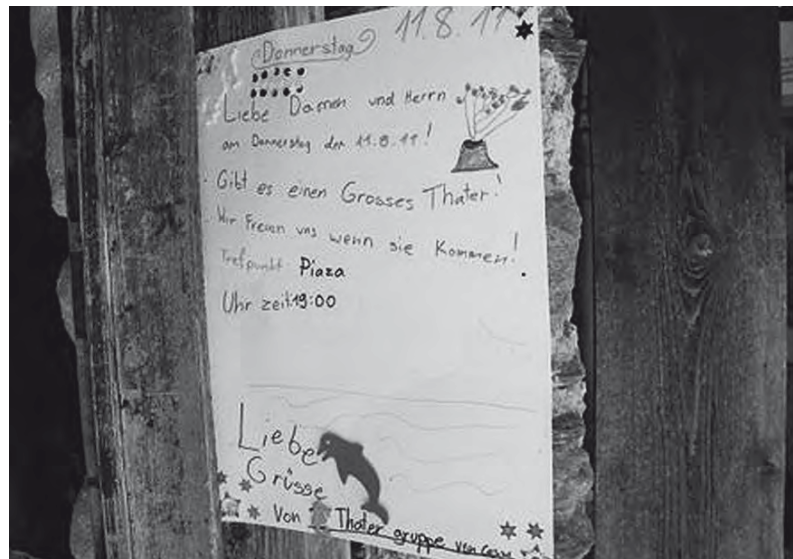 11.8.11
Donnerstag
Liebe Damen und Herrn
am Donnerstag den 11.8.11!
Gibt es einen Grosses Thater!
Wir Freuen uns wenn sie Kommen!
Trefpunkt Piaza
Uhr zeit:19:00
Liebe
Grüsse
Von Thater gruppe von